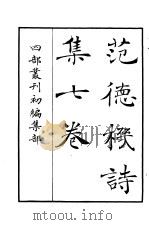 范德機詩
集七卷
四部叢刊初編集部
mtoou.info